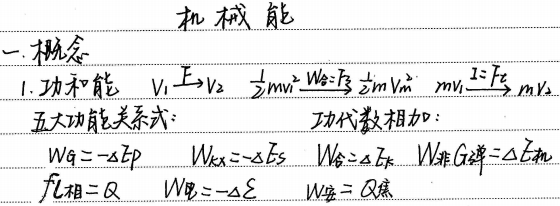 机械能
一.概念
1.功和能 V₁ —F→ V₂ ½mv₁² —W合=Fs→ ½mVₘ² mv₁ —I=Ft→ mv₂
五大功能关系式: 功代数相加:
WG=-ΔEp Wkx=-ΔEs W合=ΔEk W非G弹=ΔE机
fL相=Q W电=-Δε W安=Q焦